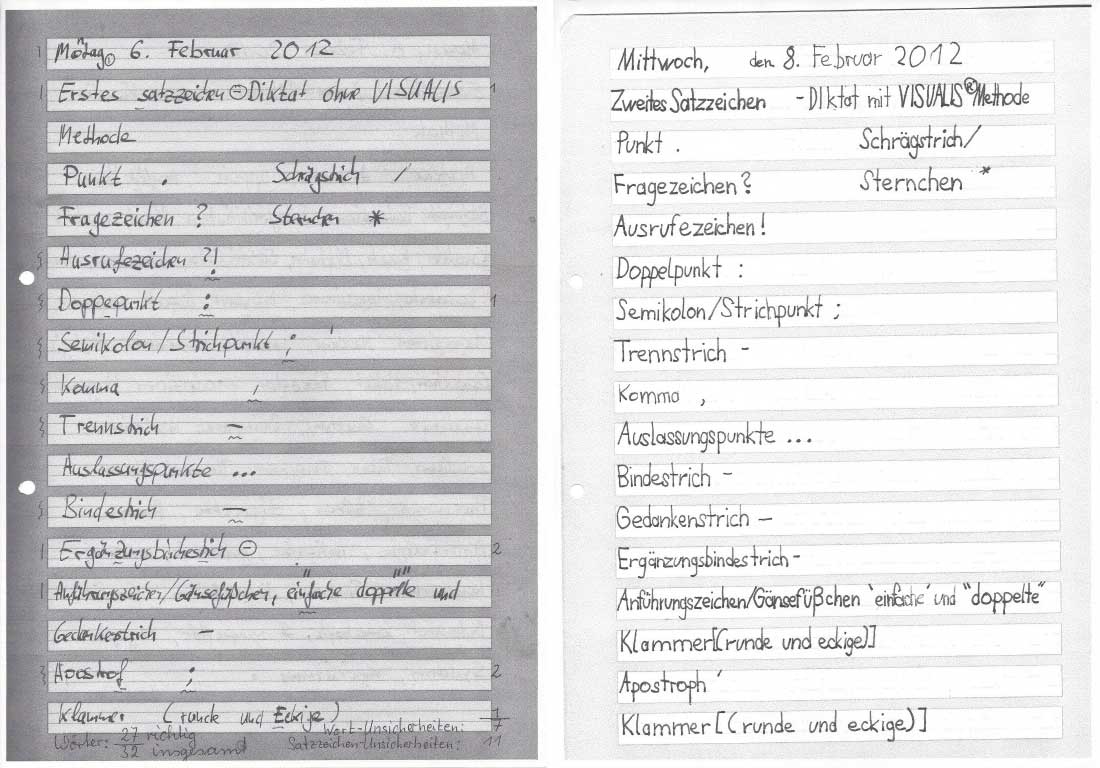 Montag, 6. Februar 2012
Erstes satzzeichen-Diktat ohne VISUALIS 1
Methode
Punkt . Schrägstrich /
Fragezeichen ? Sternchen *
Ausrufezeichen ?!
Doppepunkt : 1
Semikolon/Strichpunkt ;
Komma ,
Trennstrich -
Auslassungspunkte ...
Bindestrich -
Ergänzungsbindestich - 2
Anführungszeichen/Gänsefüßchen, einfache doppelte und
Gedankenstrich -
Apostrof ; 2
Klammer (runde und Eckige) 1
Wort-Unsicherheiten: 7
Wörter: 27 richtig
32 insgesamt
Satzzeichen-Unsicherheiten: 11
Mittwoch, den 8. Februar 2012
Zweites Satzzeichen -DIktat mit VISUALIS® Methode
Punkt . Schrägstrich/
Fragezeichen? Sternchen *
Ausrufezeichen!
Doppelpunkt :
Semikolon/Strichpunkt ;
Trennstrich -
Komma ,
Auslassungspunkte ...
Bindestrich -
Gedankenstrich —
Ergänzungsbindestrich-
Anführungszeichen/Gänsefüßchen 'einfache' und "doppelte"
Klammer[(runde und eckige)]
Apostroph ʹ
Klammer[(runde und eckige)]